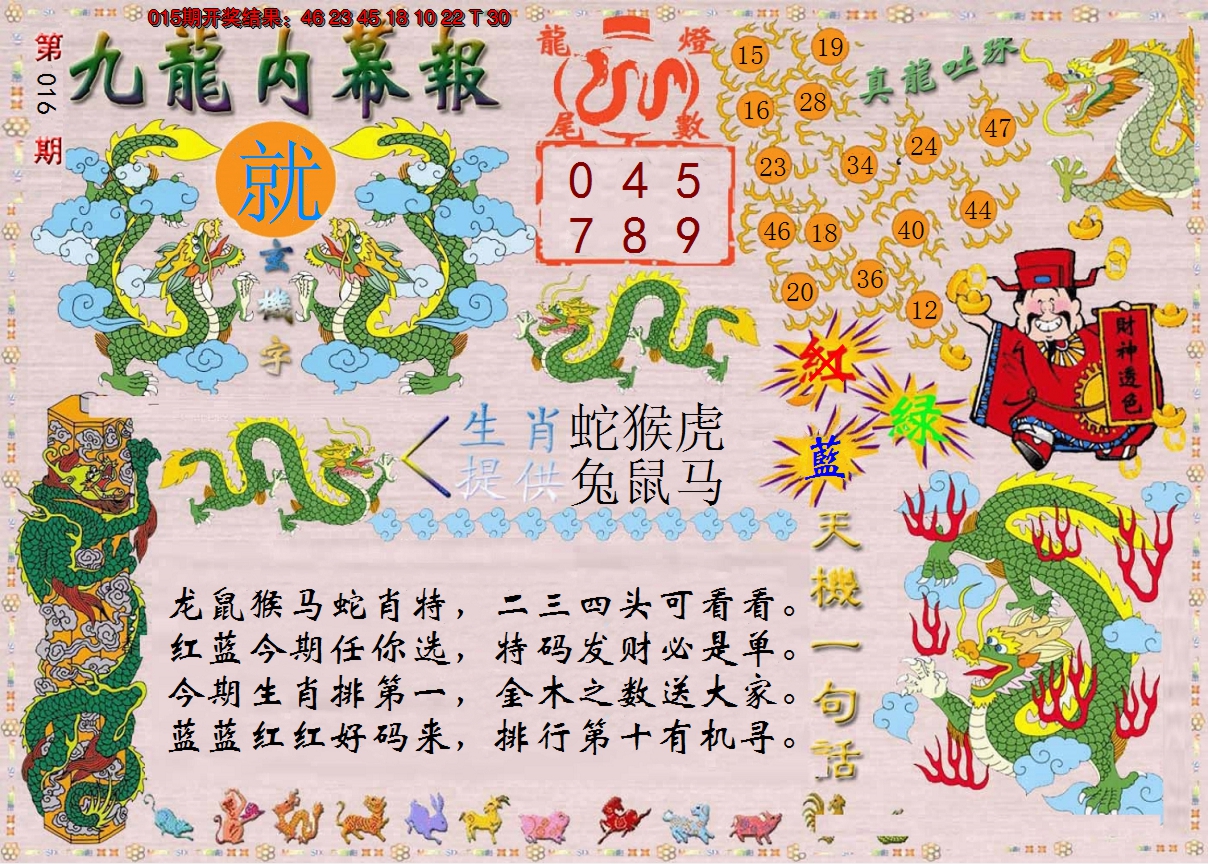 015期开奖结果：46 23 45 18 10 22 T 30
第016期
九龍内幕報
龍燈
尾數
0 4 5
7 8 9
真龍吐珠
15
19
16
28
23
34
24
47
46
18
40
44
20
36
12
就
玄機字
財神透色
紅
綠
藍
生肖 蛇猴虎
提供 兔鼠马
天機一句話
龙鼠猴马蛇肖特，二三四头可看看。
红蓝今期任你选，特码发财必是单。
今期生肖排第一，金木之数送大家。
蓝蓝红红好码来，排行第十有机寻。